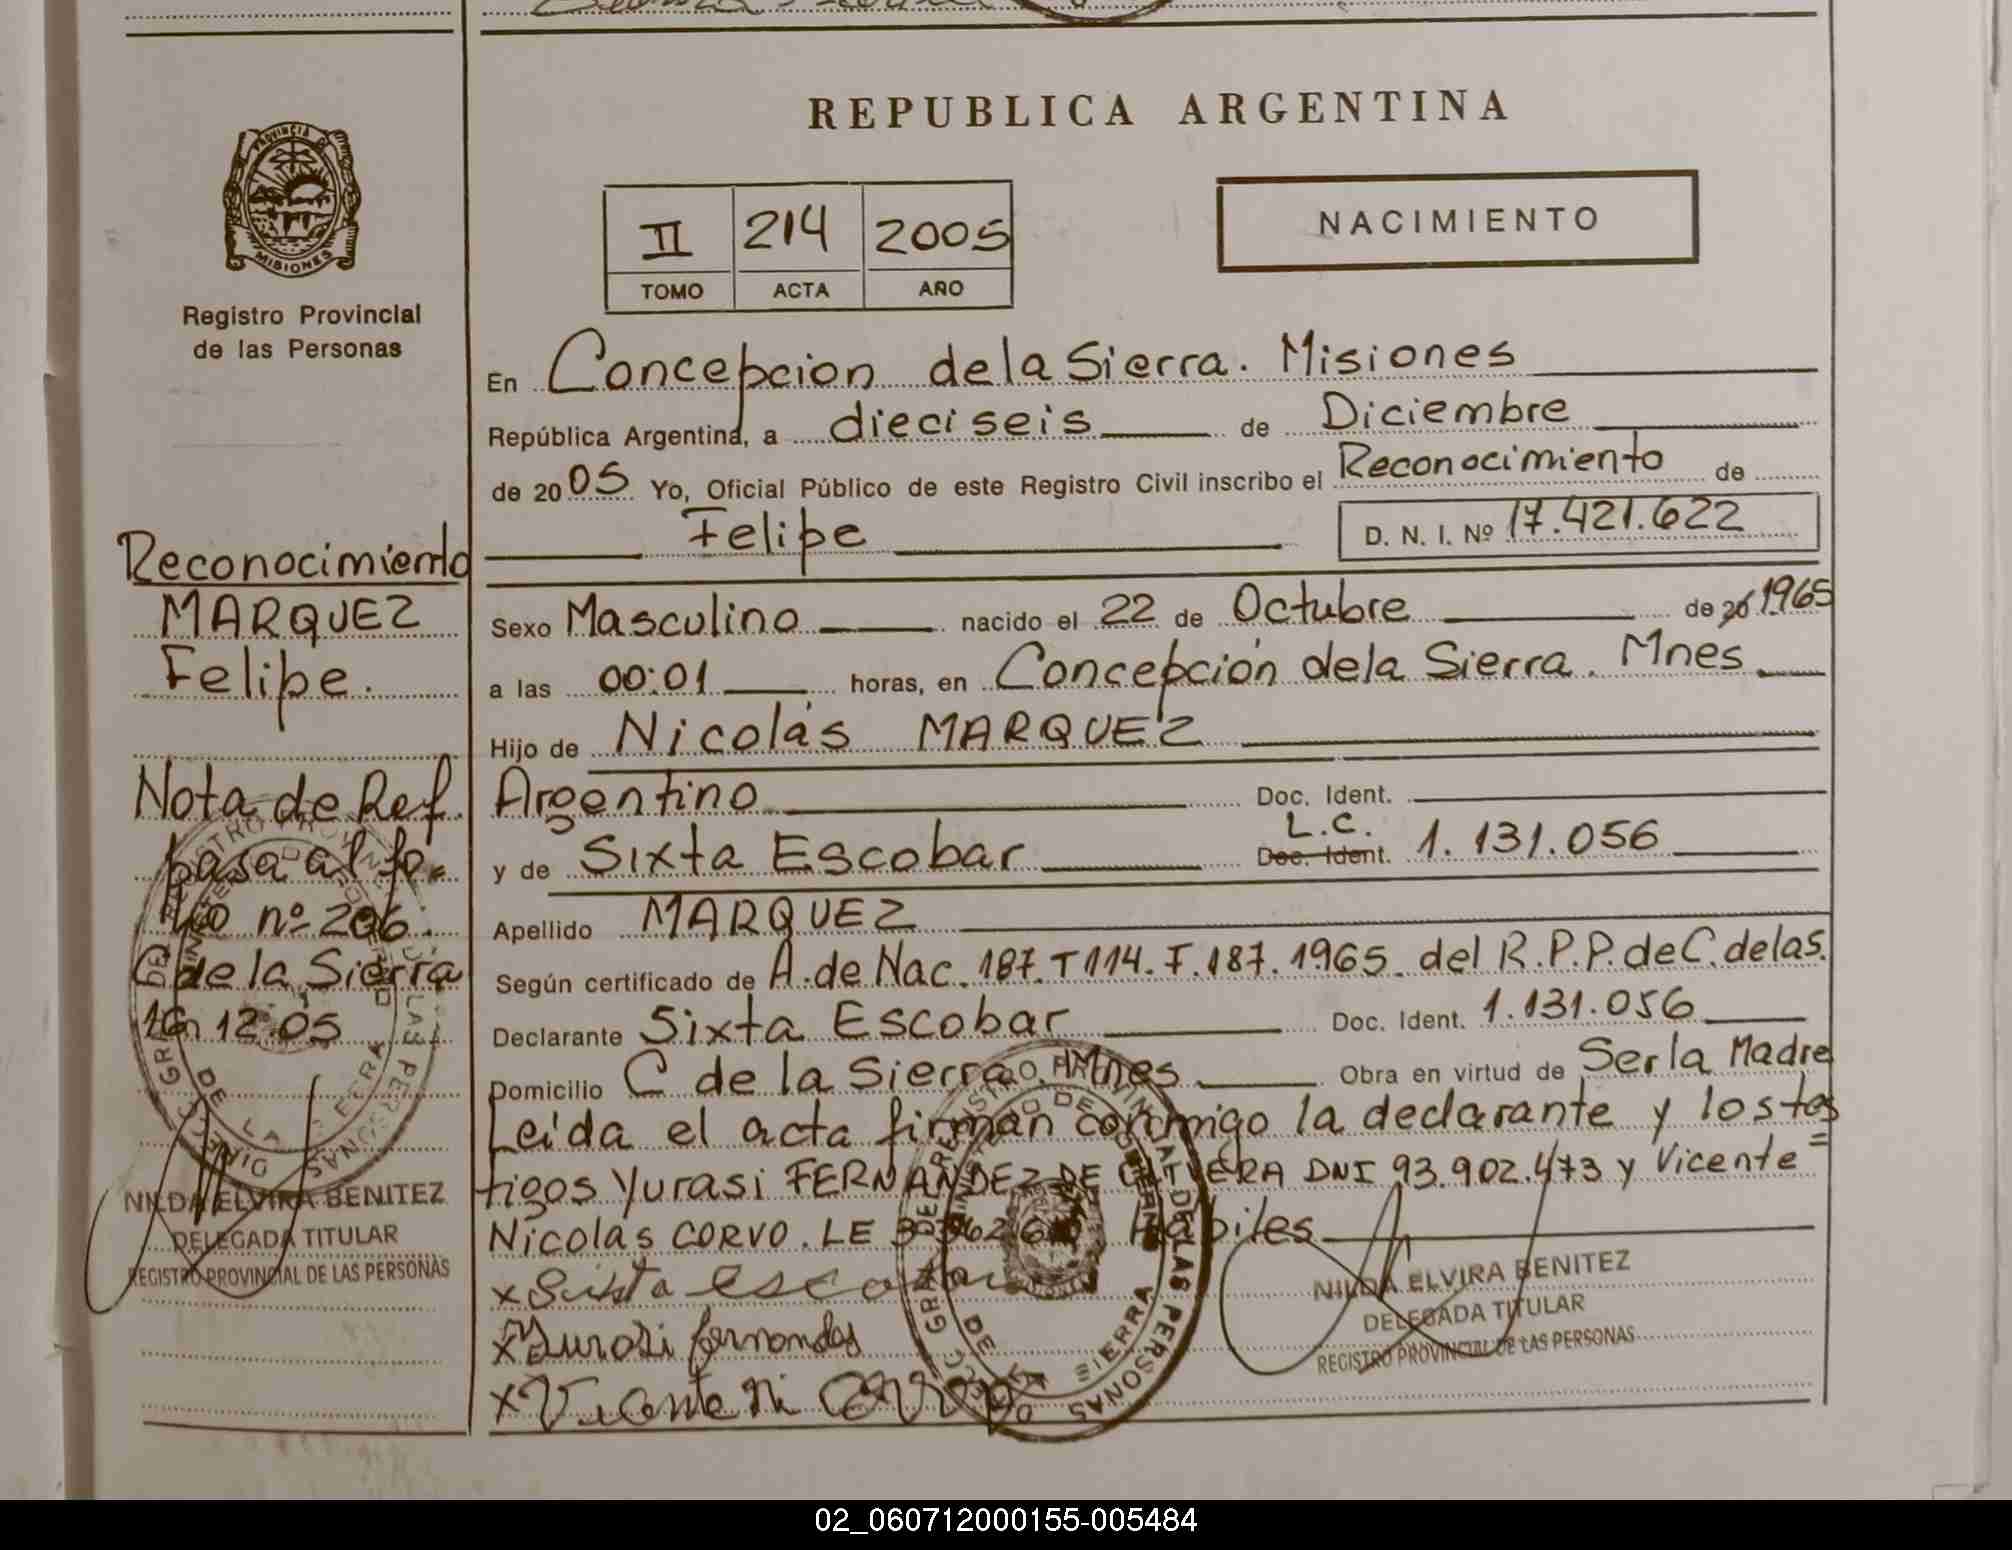 REPUBLICA ARGENTINA
PROVINCIA DE
MISIONES
Registro Provincial
de las Personas
II 214 2005
TOMO ACTA AÑO
NACIMIENTO
En Concepcion de la Sierra. Misiones
República Argentina, a dieciseis de Diciembre
de 2005 Yo, Oficial Público de este Registro Civil inscribo el Reconocimiento de
Felipe D. N. I. Nº 17.421.622
Sexo Masculino nacido el 22 de Octubre de 1965
a las 00:01 horas, en Concepción de la Sierra. Mnes
Hijo de Nicolás MARQUEZ
Argentino Doc. Ident.
L.C.
y de Sixta Escobar Doc. Ident. 1.131.056
Apellido MARQUEZ
Según certificado de A. de Nac. 187. T 114. F. 187. 1965. del R.P.P. de C. de la S.
Declarante Sixta Escobar Doc. Ident. 1.131.056
Domicilio C de la Sierra Mnes Obra en virtud de Ser la Madre
Leída el acta firman conmigo la declarante y los tes
tigos Yurasi FERNANDEZ DE DNI 93.902.473 y Vicente =
Nicolás CORVO. LE Habiles
x Sixta escobar
x Yurasi fernandes
x Vicente Ni Corvo
NILDA ELVIRA BENITEZ
DELEGADA TITULAR
REGISTRO PROVINCIAL DE LAS PERSONAS
Reconocimiento
MARQUEZ
Felipe.
Nota de Ref.
pasa al fo.
lio nº 206
C de la Sierra
16 12 05
NILDA ELVIRA BENITEZ
DELEGADA TITULAR
REGISTRO PROVINCIAL DE LAS PERSONAS
02_060712000155-005484